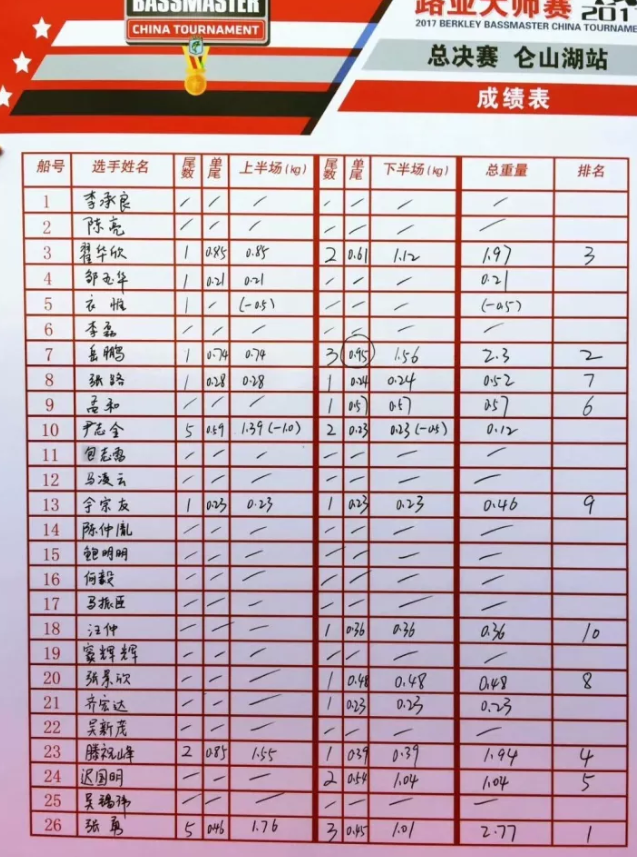 BASSMASTER
CHINA TOURNAMENT
路亚大师赛 201
2017 BERKLEY BASSMASTER CHINA TOURNAME
总决赛 仑山湖站
成绩表
船号 选手姓名 尾数 单尾 上半场(kg) 尾数 单尾 下半场(kg) 总重量 排名
1 李承良 / / / / / / /
2 陈亮 / / / / / / /
3 翟华欣 1 0.85 0.85 2 0.61 1.12 1.97 3
4 邹玉华 1 0.21 0.21 / / / 0.21
5 衣 1 / (-0.5) / / / (-0.5)
6 李磊 / / / / / / /
7 岳鹏 1 0.74 0.74 3 0.95 1.56 2.3 2
8 张路 1 0.28 0.28 1 0.24 0.24 0.52 7
9 孟和 / / / 1 0.57 0.57 0.57 6
10 尹志全 5 0.59 1.39(-1.0) 2 0.23 0.23(-0.5) 0.12
11 包志 / / / / / / /
12 马凌云 / / / / / / /
13 宗友 1 0.23 0.23 1 0.23 0.23 0.46 9
14 陈仲胤 / / / / / / /
15 鲍明明 / / / / / / /
16 何毅 / / / / / / /
17 马振臣 / / / / / / /
18 汪仲 / / / 1 0.36 0.36 0.36 10
19 辉辉 / / / / / / /
20 张景欣 / / / 1 0.48 0.48 0.48 8
21 齐宏达 / / / 1 0.23 0.23 0.23
22 吴新茂 / / / / / / /
23 滕祝峰 2 0.85 1.55 1 0.39 0.39 1.94 4
24 迟国明 / / / 2 0.54 1.04 1.04 5
25 吴瑞祎 / / / / / / /
26 张勇 5 0.46 1.76 3 0.45 1.01 2.77 1